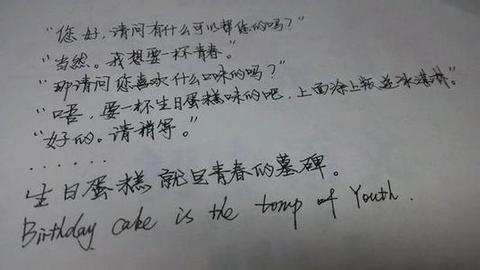 “您好，请问有什么可以帮您的吗？”
“当然。我想要一杯青春。”
“那请问您喜欢什么口味的吗？”
“唔，要一杯生日蛋糕味的吧，上面涂上冰淇淋。”
“好的。请稍等。”
......
生日蛋糕就是青春的墓碑。
Birthday cake is the tomp of Youth.